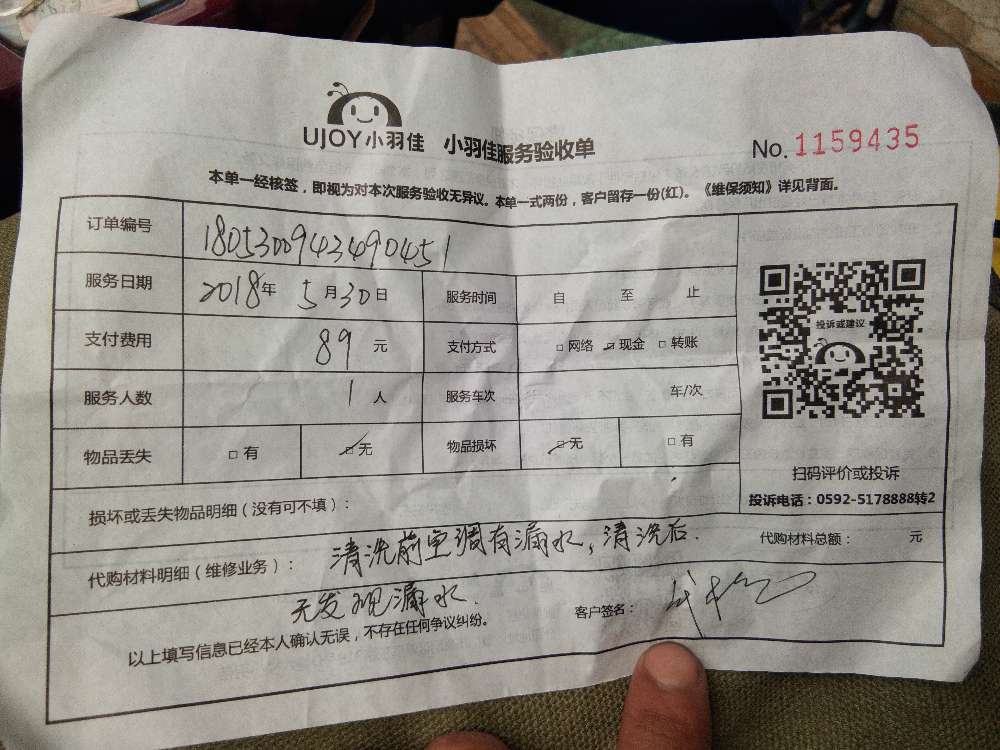 UJOY小羽佳 小羽佳服务验收单 No. 1159435
本单一经核签，即视为对本次服务验收无异议。本单一式两份，客户留存一份(红)。《维保须知》详见背面。
订单编号 1805300943490451
服务日期 2018年 5月30日 服务时间 自 至 止
投诉或建议
支付费用 89 元 支付方式 □网络 ☑现金 □转账
服务人数 1 人 服务车次 车/次
物品丢失 □有 ☑无 物品损坏 ☑无 □有
扫码评价或投诉
投诉电话：0592-5178888转2
损坏或丢失物品明细（没有可不填）：
代购材料明细（维修业务）： 清洗前空调有漏水，清洗后. 代购材料总额： 元
无发现漏水.
以上填写信息已经本人确认无误，不存在任何争议纠纷。 客户签名：